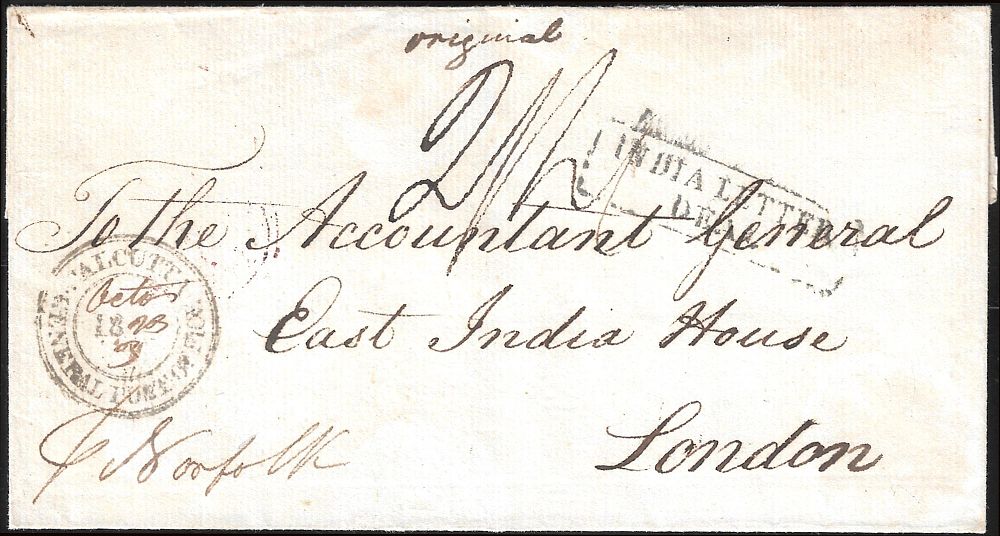 original
2/
INDIA LETTER
DEAL
To the Accountant General
East India House
London
CALCUTTA GENERAL POST OFFICE
Octo
18
p Norfolk